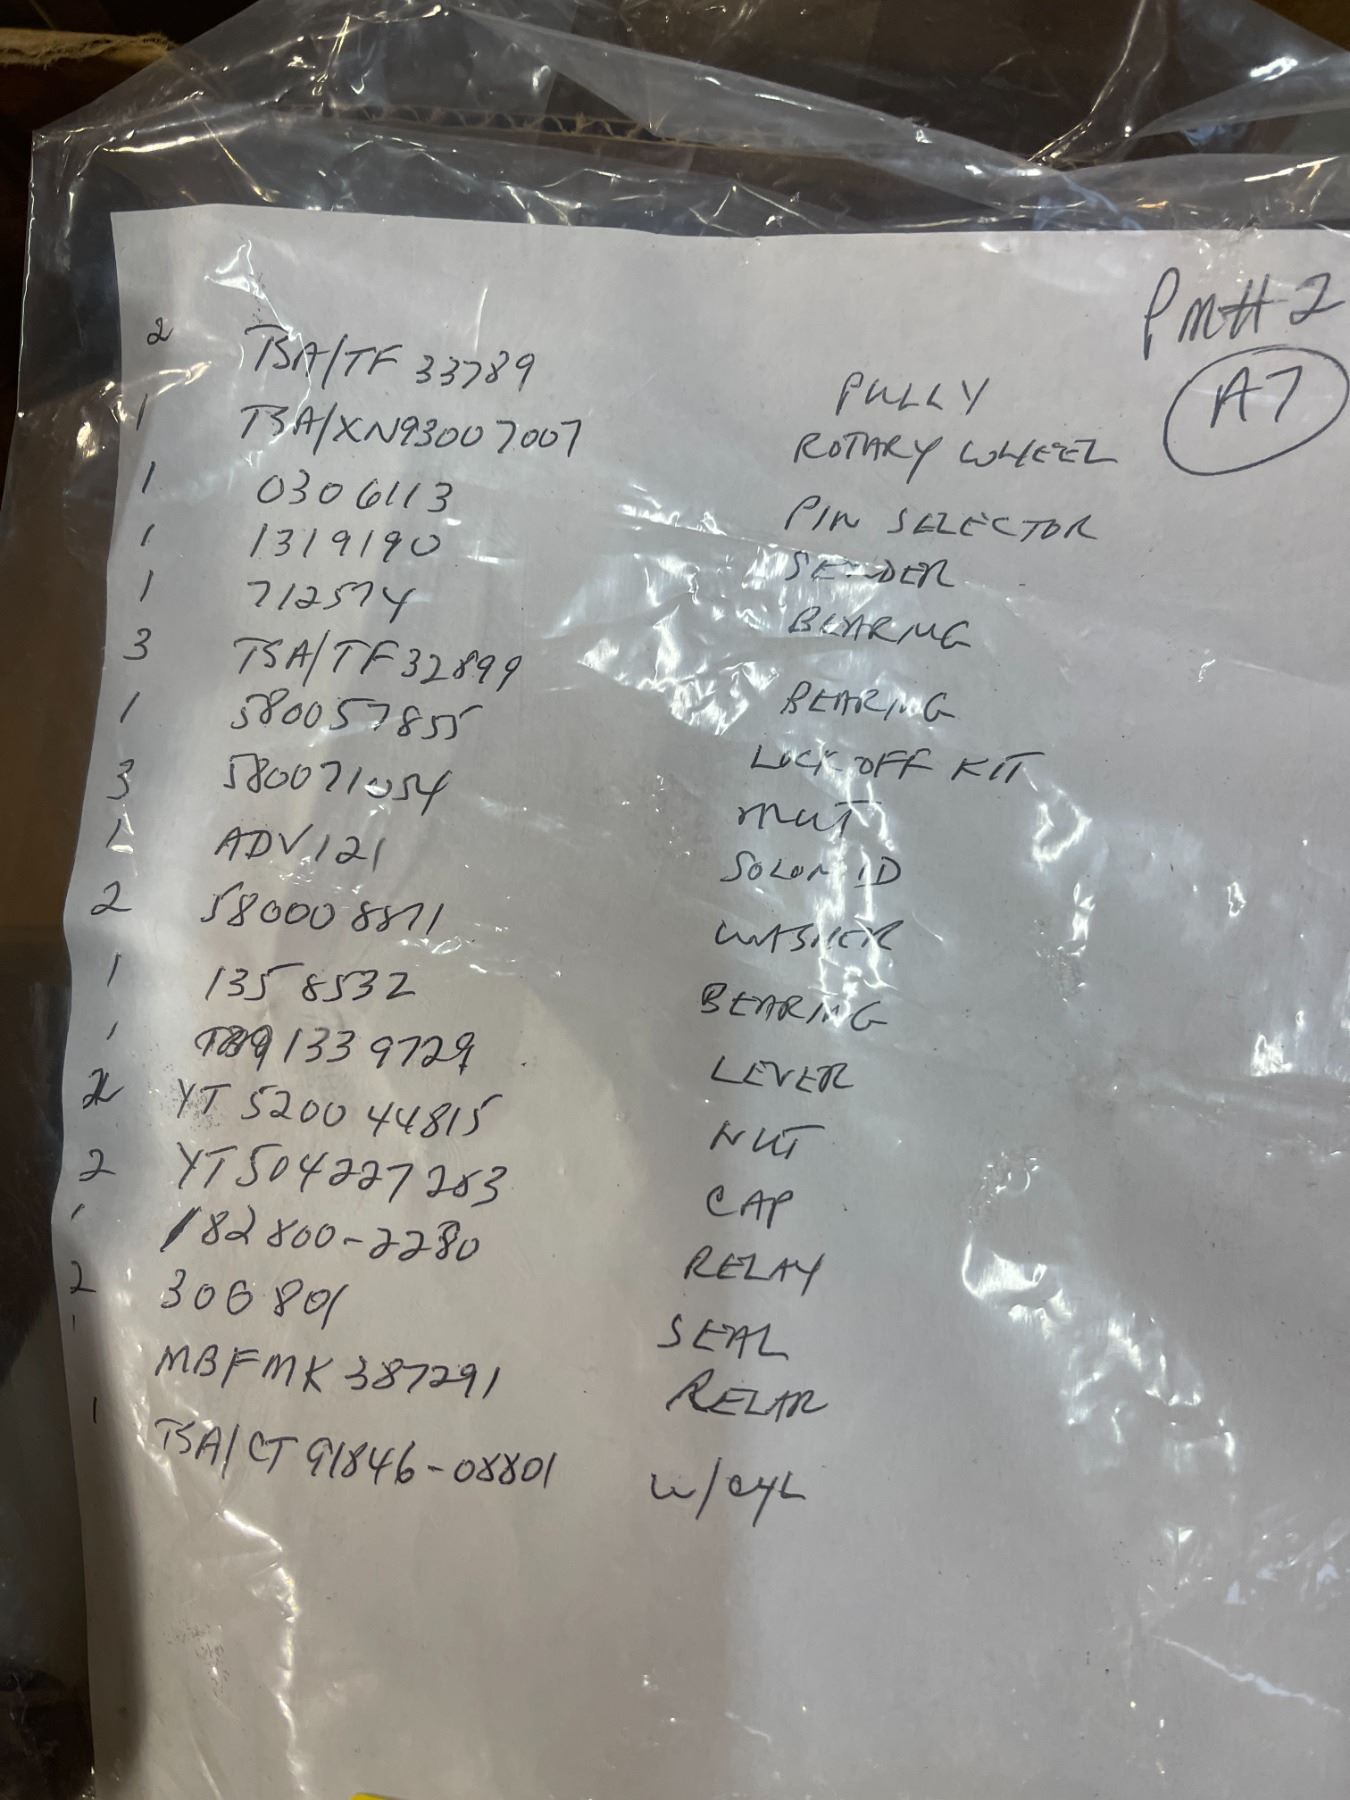 PMH 2
A7
2 TSA/TF 33789 PULLY
1 TSA/XN93007007 ROTARY WHEEL
1 0306113 PIN SELECTOR
1 1319190 SENDER
1 712574 BEARING
3 TSA/TF32899 BEARING
1 580057855 LOCK OFF KIT
3 580071054 NUT
1 ADV121 SOLON ID
2 580008871 WASHER
1 1358532 BEARING
1 1339729 LEVER
YT 520044815 NUT
2 YT504227263 CAP
1 182800-2280 RELAY
2 306801 SEAL
1 MBFMK387291 RELAR
1 TSA/CT91846-08801 W/CYL